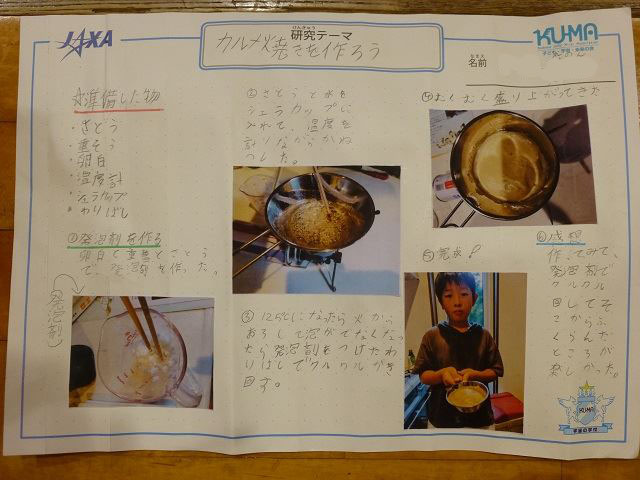 JAXA
けんきゅう
研究テーマ
カルメ焼きを作ろう
KU-MA
子ども・宇宙・未来の会
なまえ
名前
☆準備した物
・さとう
・重そう
・卵白
・温度計
・シェラカップ
・わりばし
①発泡剤を作る
卵白と重曹とさとう
で、発泡剤を作った。
(発泡剤)
②さとうと水を
シェラカップに
入れて、温度を
計りながらかね
つした。
③125℃になったら火から
おろして泡がでなくなっ
たら発泡剤をつけたわ
りばしでクルクルかき
回す。
④むくむく盛り上がってきた
⑤完成!
⑥感想
作ってみて、
発泡剤で
クルクル
回してそ
こからふ
くらんだ
ところが
楽しかった。
KU-MA
宇宙の学校